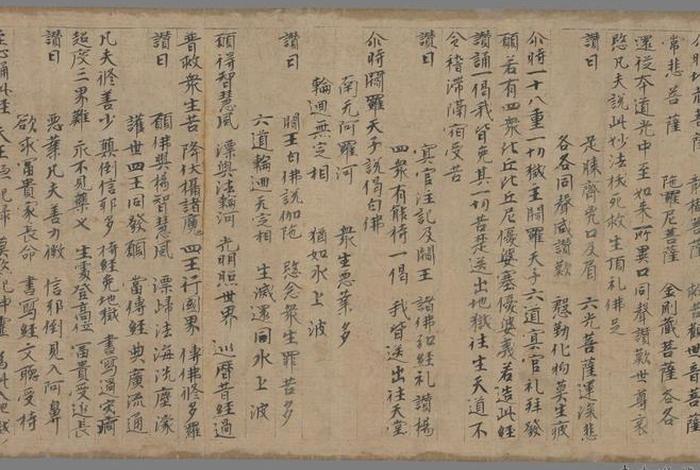 常悲菩薩 陁羅尼菩薩 金剛藏菩薩 各各
還從本道光中至如來所異口同聲讚歎世尊哀
愍凡夫說此妙法拔死救生頂礼佛足
讚曰 足膝齊胷口及眉 六光菩薩運深悲
各各同聲咸讚歎 慇勤化物莫生疲
尒時一十八重一切獄主閻羅天子六道冥官礼拜發
願若有四衆比丘比丘尼優婆塞優婆義若造此經
讚誦一偈我皆免其一切苦楚送出地獄往生天道不
令稽滯隔宿受苦
讚曰 冥官注記及閻王 諸佛弘經礼讚揚
四衆有能持一偈 我皆送出往天堂
尒時閻羅天子說偈白佛
南无阿羅河 衆生惡業多
輪迴無定相 猶如水上波
讚曰 閻王白佛說伽陁 愍念衆生罪苦多
六道輪迴无定相 生滅還同水上波
願得智慧風 漂與法輪河 光明照世界 巡歷昔經過
普救衆生苦 降伏攝諸魔 四王行國界 傳佛修多羅
讚曰 願佛興揚智慧風 漂歸法海洗塵濛
護世四王同發願 當傳經典廣流通
凡夫修善少 顛倒信邪多 持經免地獄 書寫過灾痾
超度三界難 永不見藥叉 生處登高位 富貴受延長
讚曰 惡業凡夫善力微 信邪倒見入阿鼻
欲求富貴家長命 書寫經文聽受持